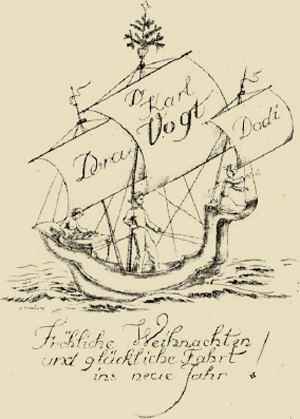 Dr Karl
Vogt
Dora
Dodi
Fröhliche Weihnachten
und glückliche Fahrt
ins neue Jahr!